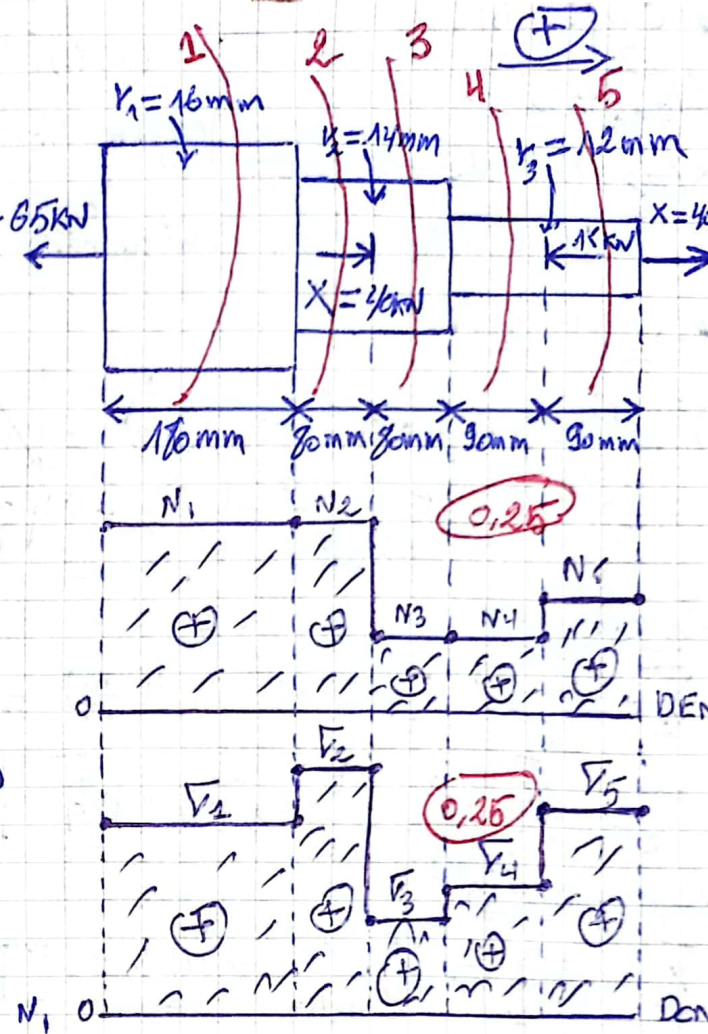 1 2 3 4 5 +
r₁=16mm
r₂=14mm
r₃=12mm
65kN
X=40kN
15kN
X=40
180mm 80mm 80mm 90mm 90mm
N₁ N2 0,25
N3 N4 N5
+ + + + +
0 DEN
σ1 σ2 0,25 σ5
σ3 σ4
+ + + + +
N₁ 0 DCN